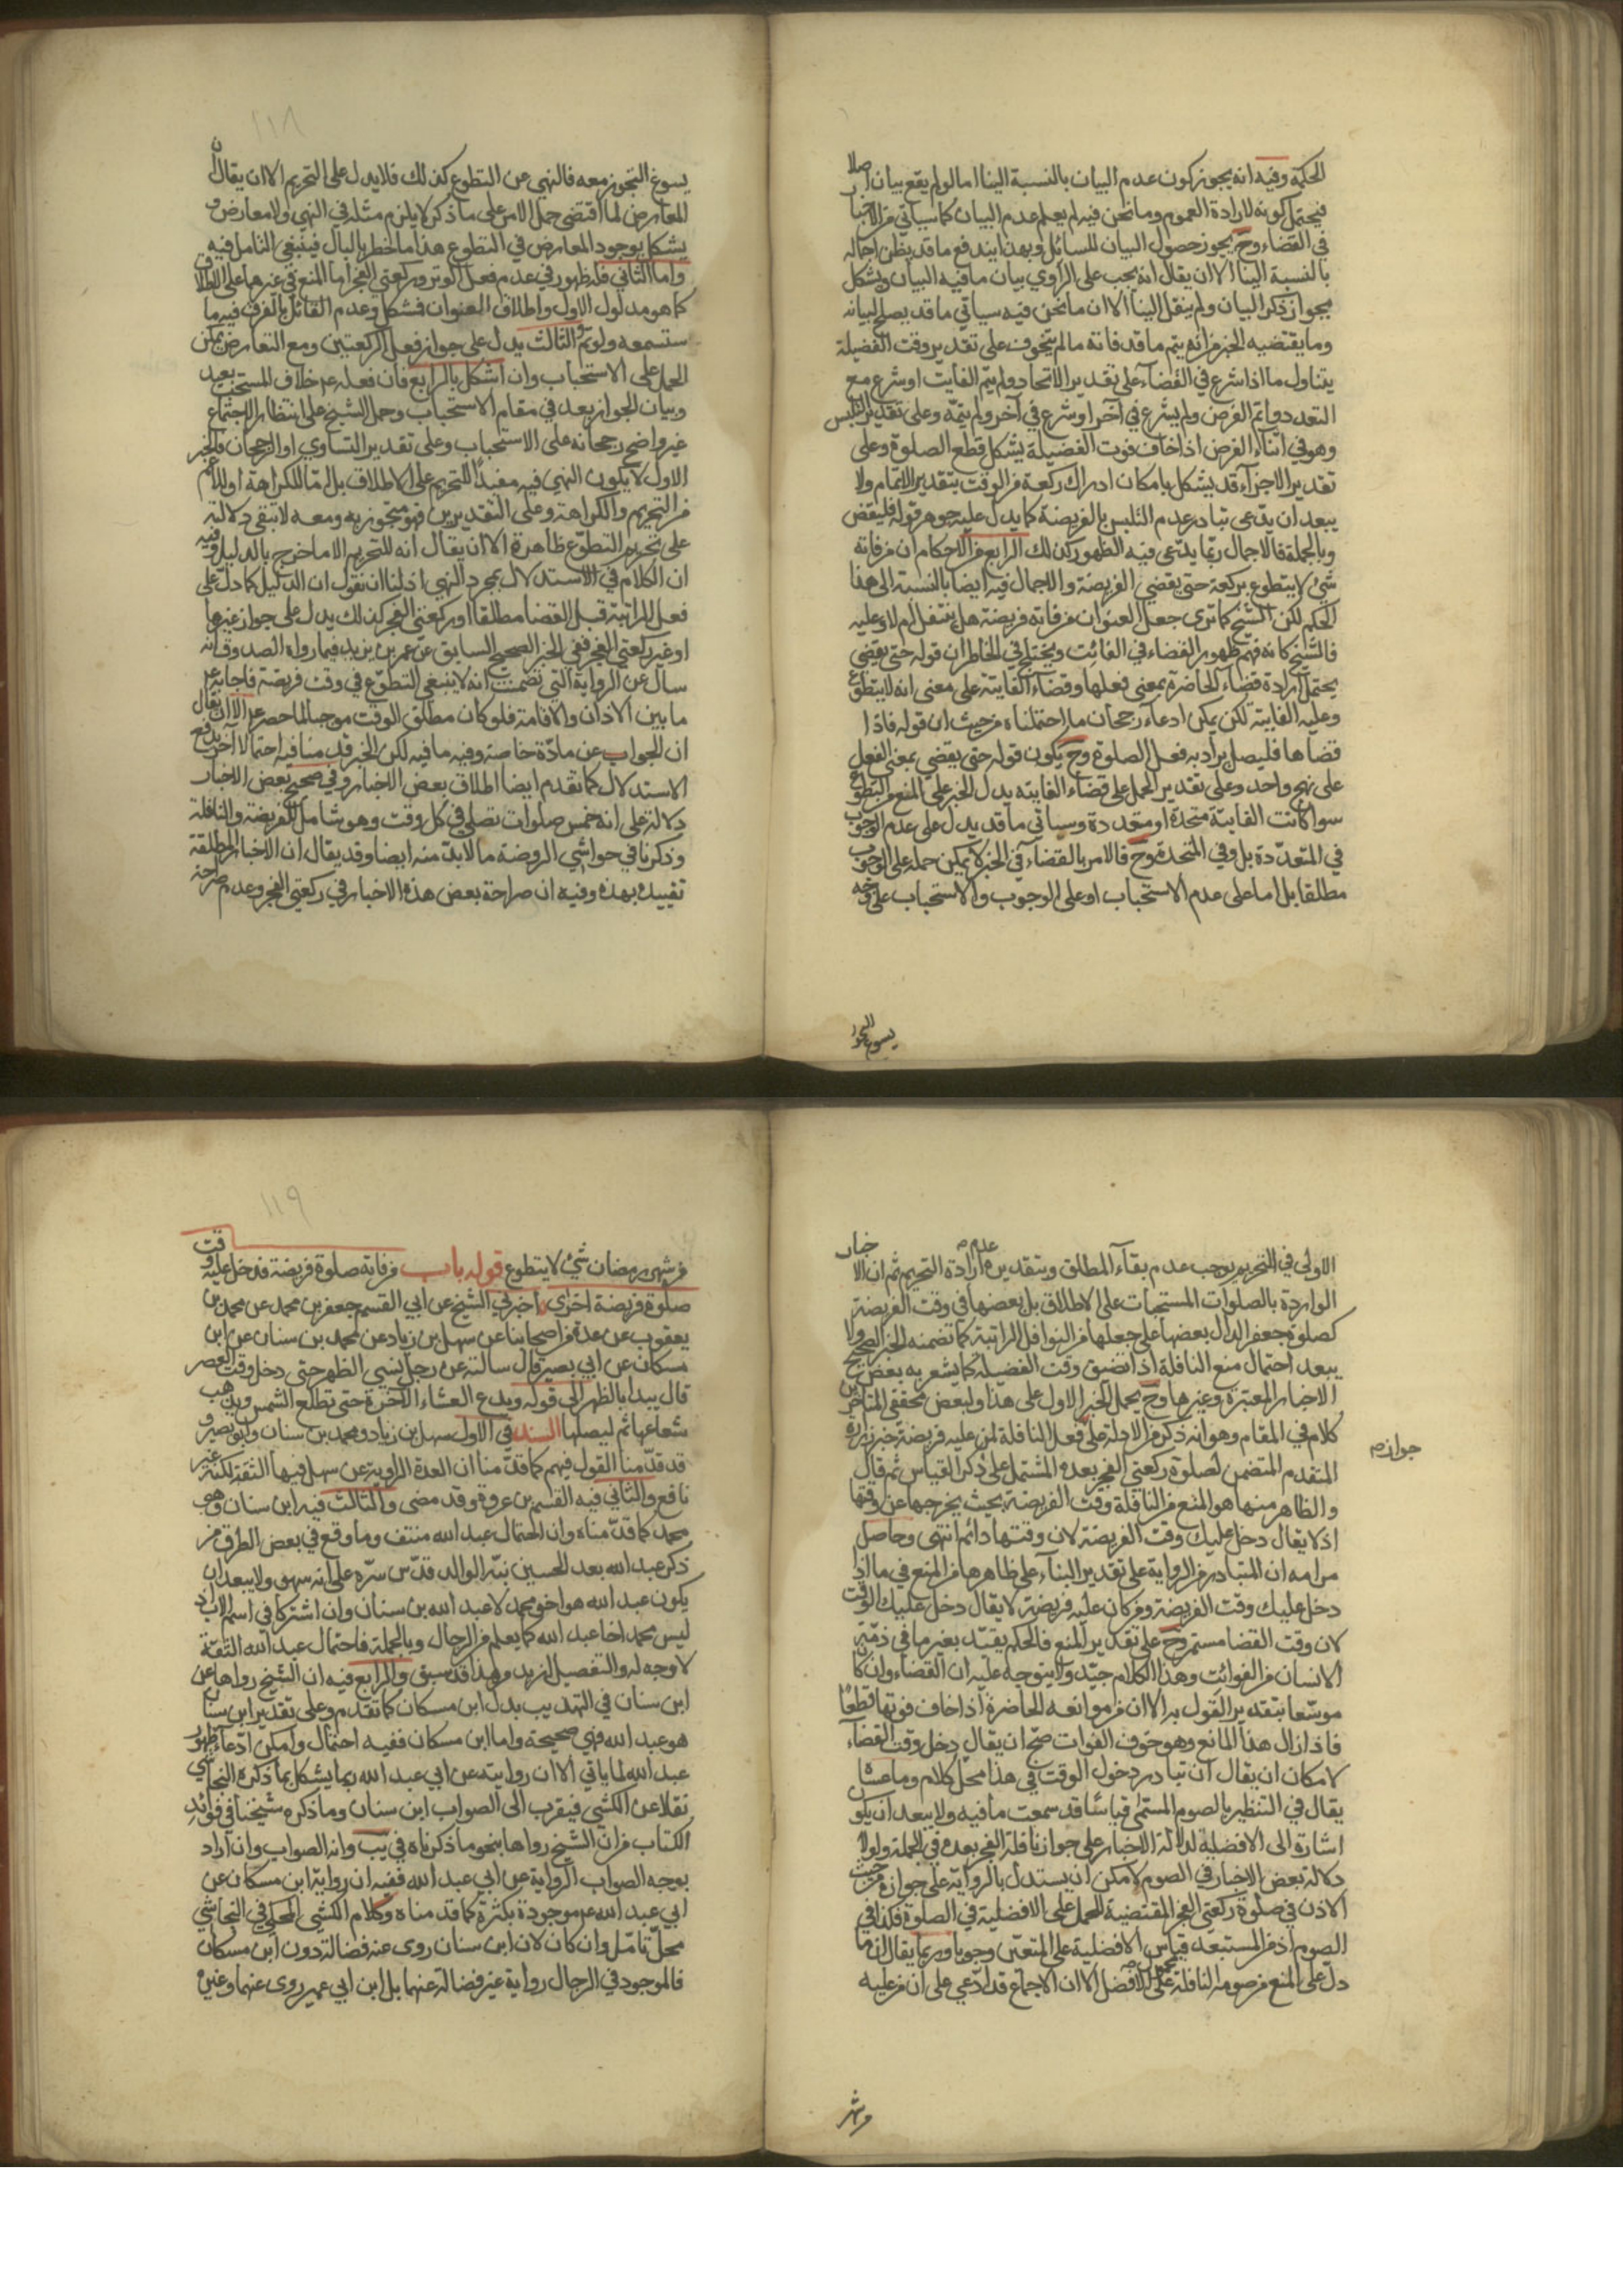 الحكمة وفيه انه يجوز كون عدم البيان بالنسبة الينا امالو لم يقع بيان اصلا
فيحتمل كونه لارادة العموم وما نحن فيه لم يعلم عدم البيان كما سياتي من الاخبار
في القضاء وح يجوز حصول البيان للسائل وبهذا يندفع ما قد يظن احاله
بالنسبة الينا الا ان يقال انه يجب على الراوي بيان ما فيه البيان ويشكل
بجواز ذكر البيان ولم ينقل الينا الا ان ما نحن فيه سياتي ما قد يصلح لبيانه
وما يقتضيه الخبر من انه يتم ما قد فاته ما لم يتخوف على تقدير وقت الفضيلة
يتناول ما اذا شرع في القضاء على تقدير الاتحاد ولم يتم الفايت او شرع مع
التعدد واتم الفرض ولم يشرع في آخر او شرع في آخر ولم يتمه وعلى تقدير التلبس
وهو في اثناء الفرض اذا خاف فوت الفضيلة يشكل قطع الصلوة وعلى
تقدير الاجزاء قد يشكل بامكان ادراك ركعة من الوقت بتقدير الاتمام ولا
يبعد ان يدعى تبادر عدم التلبس بالفريضة كما يدل عليه جوهر قوله فليقض
وبالجملة فالاجمال ربما يدعى فيه الظهور كذلك الرابع من الاحكام ان من فاته
شئ لا يتطوع بركعة حتى يقضي الفريضة والاجمال فيه ايضا بالنسبة الى هذا
الحكم لكن الشيخ كما ترى جعل العنوان من فاته فريضة هل يتنفل ام لا وعليه
فالشيخ كانه فهم ظهور القضاء في الفائت ويختلج في الخاطر ان قوله حتى يقضي
يحتمل ارادة قضاء الحاضرة بمعنى فعلها وقضاء الفايتة على معنى انه لا يتطوع
وعليه الفايتة لكن يمكن ادعاء رجحان ما احتملناه من حيث ان قوله فاذا
قضاها فليصل يراد به فعل الصلوة وح يكون قوله حتى يقضي بمعنى الفعل
على نهج واحد وعلى تقدير الحمل على قضاء الفايته يدل الخبر على المنع من التطوع
سوا كانت الفايتة متحدة او متعددة وسياتي ما قد يدل على عدم الوجوب
في المتعددة بل وفي المتحدة وح فالامر بالقضاء في الخبر لا يمكن حمله على الوجوب
مطلقا بل اما على عدم الاستحباب او على الوجوب والاستحباب على وجه
يسوغ التجوز
١١٨
يسوغ التجوز معه فالنهي عن التطوع كذلك فلا يدل على التحريم الا ان يقال ان
المعارض لما اقتضى حمل الامر على ما ذكر لا يلزم مثله في النهي ولا معارض و
يشكل بوجود المعارض في التطوع هذا ما خطر بالبال فينبغي التامل فيه
واما الثاني فله ظهور في عدم فعل الوتر وركعتي الفجر اما المنع في غيرها على الاطلاق
كما هو مدلول الاول واطلاق العنوان فشكل وعدم القائل بالفرق فيه ما
ستسمعه ولو تم الثالث يدل على جواز فعل الركعتين ومع التعارض يمكن
الحمل على الاستحباب وان اشكل بالرابع فان فعله خلاف المستحب بعيد
وبيان الجواز بعد في مقام الاستحباب وحمل الشيخ على انتظار الاجتماع
غير واضح رجحانه على الاستحباب وعلى تقدير التساوي او الرجحان فالخبر
الاول لا يكون النهي فيه مفيدا للتحريم على الاطلاق بل اما للكراهة او للاعم
من التحريم والكراهة وعلى التقديرين فهو متجوز به ومعه لا تبقى دلالته
على تحريم التطوع ظاهرة الا ان يقال انه للتحريم الا ما خرج بالدليل وفيه
ان الكلام في الاستدلال بمجرد النهي اذ لنا ان نقول ان الدليل كما دل على
فعل الراتبة قبل القضا مطلقا او ركعتي الفجر كذلك يدل على جواز غيرها
او غير ركعتي الفجر ففي الخبر الصحيح السابق عن عمر بن يزيد فيما رواه الصدوق انه
سال عن الرواية التي تضمنت انه لا ينبغي التطوع في وقت فريضة فاجابه
ما بين الاذان والاقامة فلو كان مطلق الوقت موجبا لما حصر الا ان يقال
ان الجواب عن مادة خاصة وفيه ما فيه لكن الخبر قد منا فيه احتمالا آخر يدفع
الاستدلال كما تقدم ايضا اطلاق بعض الاخبار وفي صحيح بعض الاخبار
دلالة على انه خمس صلوات تصلي في كل وقت وهو شامل للفريضة والنافلة
وذكرنا في حواشي الروضة ما لا بد منه ايضا وقد يقال ان الاخبار المطلقة
تقييدها بهذه وفيه ان صراحة بعض هذه الاخبار في ركعتي الفجر وعدم صراحة
الاولى في التحريم يوجب عدم بقاء المطلق وبتقدير عدم ارادة التحريم ثم ان الاخبار
الواردة بالصلوات المستحبات على الاطلاق بل بعضها في وقت الفريضة
كصلوة جعفر الدال بعضها على جعلها من النوافل الراتبة كما تضمنه الخبر الصحيح ولا
يبعد احتمال منع النافلة اذا تضيق وقت الفضيلة كما يشعر به بعض
الاخبار المعتبرة وغيرها وح يحمل الخبر الاول على هذا ولبعض محققي المتاخرين
كلام في المقام وهو انه ذكر من الادلة على فعل النافلة لمن عليه فريضة خبر زرارة
جواز
المتقدم المتضمن لصلوة ركعتي الفجر بعده المشتمل على ذكر القياس ثم قال
والظاهر منها هو المنع من النافلة وقت الفريضة بحيث يخرجها عن وقتها
اذ لا يقال دخل عليك وقت الفريضة لان وقتها دائم انتهى وحاصل
مرامه ان المتبادر من الرواية على تقدير البناء على ظاهرها من المنع في ما اذا
دخل عليك وقت الفريضة ومن كان عليه فريضة لا يقال دخل عليك الوقت
لان وقت القضا مستمر وح على تقدير المنع فالحكم يقيد بغير ما في ذمته
الانسان من الفوائت وهذا الكلام جيد ولا يتوجه عليه ان القضاء وان كان
موسعا بتقدير القول به الا ان من موانعه الحاضرة اذا خاف فوتها قطعا
فاذا زال هذا المانع وهو خوف الفوات صح ان يقال دخل وقت القضاء
لامكان ان يقال ان تبادر دخول الوقت في هذا محل كلام وما عساه
يقال في التنظير بالصوم المستمر قياسا قد سمعت ما فيه ولا يبعد ان يكون
اشارة الى الافضلية لدلالة الاخبار على جواز نافلة الفجر بعده في الجملة ولولا
دلالة بعض الاخبار في الصوم لامكن ان يستدل بالرواية على جوازه من حيث
الاذن في صلوة ركعتي الفجر المقتضية للحمل على الافضلية في الصلوة فكذا في
الصوم اذ من المستبعد قياس الافضلية على المتعين وجوبا وربما يقال ان ما
دل على المنع من صوم النافلة محمول على الافضل الا ان الاجماع قد ادعي على ان من عليه
من شهر
١١٩
من شهر رمضان شئ لا يتطوع قوله باب من فاته صلوة فريضة فدخل عليه وقت
صلوة فريضة اخرى اخبرني الشيخ عن ابي القسم جعفر بن محمد عن محمد بن
يعقوب عن عدة من اصحابنا عن سهل بن زياد عن محمد بن سنان عن ابن
مسكان عن ابي بصير قال سالته عن رجل نسي الظهر حتى دخل وقت العصر
قال يبدأ بالظهر الى قوله ويدع العشاء الآخرة حتى تطلع الشمس ويذهب
شعاعها ثم ليصلها السند في الاول سهل بن زياد ومحمد بن سنان وابو بصير و
قد قدمنا القول فيهم كما قدمنا ان العدة الراوية عن سهل فيها الثقة لكنه غير
نافع والثاني فيه القسم بن عروة وقد مضى والثالث فيه ابن سنان وهو
محمد كما قدمناه وان احتمال عبد الله منتف وما وقع في بعض الطرق من
ذكر عبد الله بعد الحسين نبه الوالد قدس سره على انه سهو ولا يبعد ان
يكون عبد الله هو اخو محمد لا عبد الله بن سنان وان اشتركا في اسم الاب اذ
ليس محمد اخا عبد الله كما يعلم من الرجال وبالجملة فاحتمال عبد الله الثقة
لا وجه له والتفصيل ازيد من هذا قد سبق والرابع فيه ان الشيخ رواها عن
ابن سنان في التهذيب بدل ابن مسكان كما تقدم وعلى تقدير ابن سنان
هو عبد الله فهي صحيحة واما ابن مسكان ففيه احتمال وامكن ادعاء ظهور
عبد الله لما ياتي الا ان روايته عن ابي عبد الله ربما يشكل بما ذكره النجاشي
نقلا عن الكشي فيقرب الى الصواب ابن سنان وما ذكره شيخنا في فوائد
الكتاب من ان الشيخ رواها بنحو ما ذكرناه في يب وانه الصواب وان اراد
بوجه الصواب الرواية عن ابي عبد الله ففيه ان رواية ابن مسكان عن
ابي عبد الله موجودة بكثرة كما قدمناه وكلام الكشي المحكي في النجاشي
محل تامل وان كان لان ابن سنان روى عنه فضالة دون ابن مسكان
فالموجود في الرجال رواية غير فضالة عنهما بل ابن ابي عمير روى عنهما وغيره